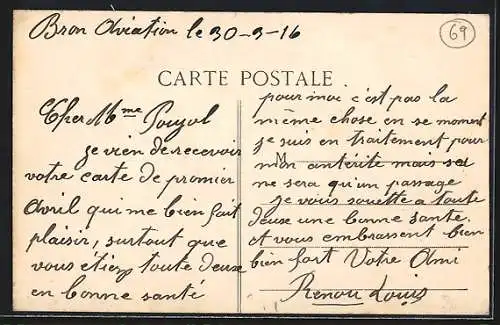 Bron Aviation le 30-3-16
69
CARTE POSTALE
Cher Mme Pouzol
je vien de recevoir
votre carte de premier
Avril qui me bien fait
plaisir, surtout que
vous étiez toute deuse
en bonne santé
pour moi c'est pas la
même chose en se moment
je suis en traitement pour
mon antérite mais sa
ne sera qu'un passage
je vous souette a toute
deuse une bonne santé.
et vous embrassent bien
bien fort Votre Ami
Renou Louis